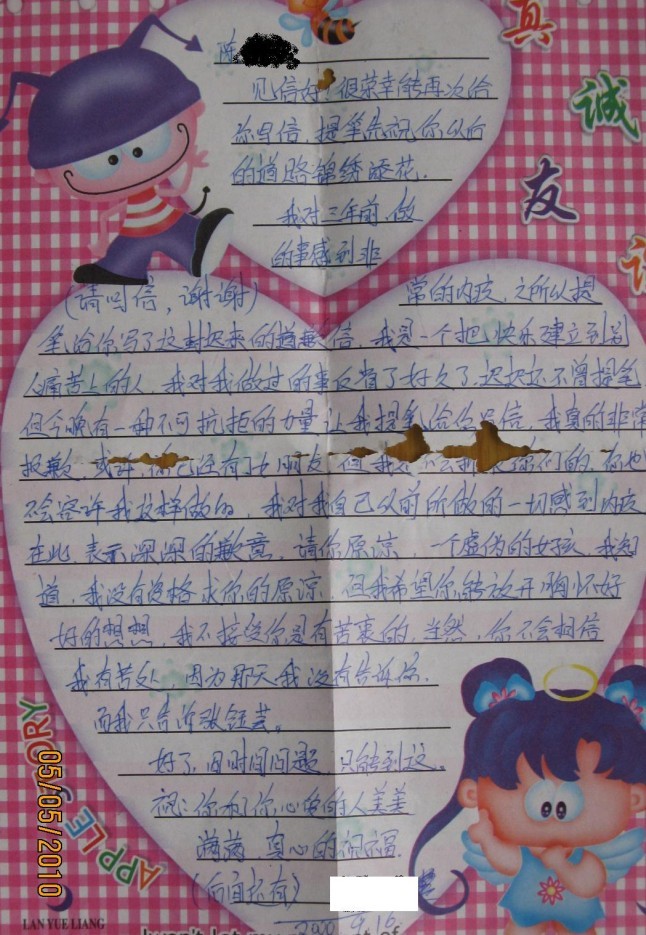 真
诚
友
陈
见信好！很荣幸能再次给
你写信，提笔先祝你以后
的道路锦绣添花.
我对三年前 做
的事感到非
(请回信，谢谢) 常的内疚，之所以提
笔给你写了这封迟来的道歉信，我是一个把快乐建立到别
人痛苦上的人，我对我做过的事反省了好久了，迟迟不曾提笔
但今晚有一种不可抗拒的力量让我提笔给你写信，我真的非常
报歉，或许，你已经有了女朋友，但我 你们的，你也
不会容许我这样做的，我对我自己以前所做的一切感到内疚
在此，表示深深的歉意，请你原凉，一个虚伪的女孩，我知
道，我没有资格求你的原凉，但我希望你能放开胸怀好
好的想想，我不接受你是有苦衷的，当然，你不会相信
我有苦处，因为那天我没有告诉你.
而我只告诉张钰芸。
好了，因时间问题，只能到这.
祝：你和你心爱的人美美
满满，真心的祝福.
(后面还有)
9.16.
APPLE STORY
05/05/2010
LAN YUE LIANG